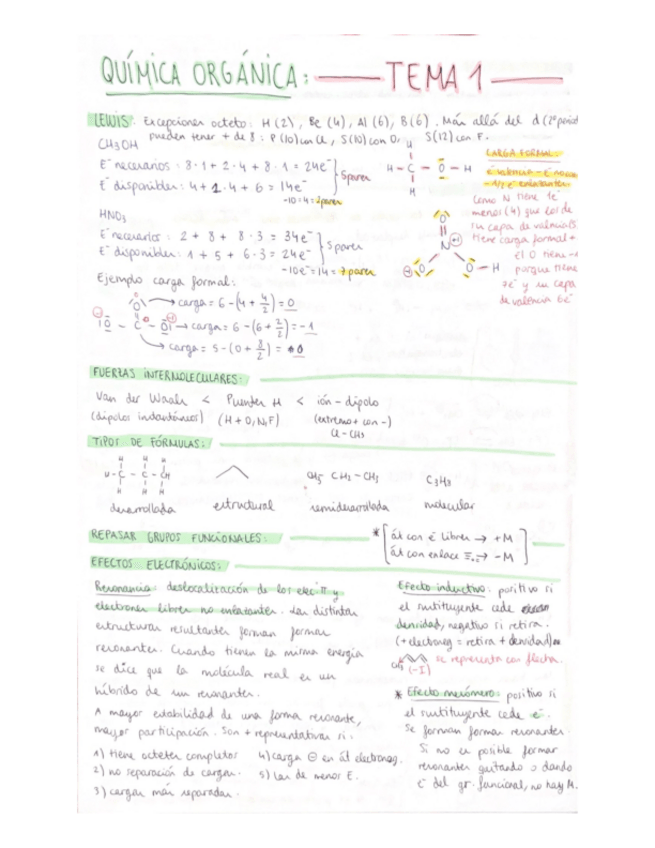 QUÍMICA ORGÁNICA: — TEMA 1 —
LEWIS. Excepciones octeto: H (2), Be (4), Al (6), B (6). Más allá del d (2º period
pueden tener + de 8: P (10) con Cl, S (10) con O, S(12) con F.
CH3OH
E⁻ necesarios: 8·1 + 2·4 + 8·1 = 24e⁻
E⁻ disponibles: 4 + 1·4 + 6 = 14e⁻
5 pares
-10 = 4 = 2 pares
H
H - C - O - H
H
CARGA FORMAL:
e⁻ valencia - e⁻ no enl
- 1/2 e⁻ enlazantes.
Como N tiene 1e⁻
menos (4) que los de
su capa de valencia 5
tiene carga formal +
el O tiene -1
porque tiene
7e⁻ y su capa
de valencia 6e⁻
HNO3
E⁻ necesarios: 2 + 8 + 8·3 = 34e⁻
E⁻ disponibles: 1 + 5 + 6·3 = 24e⁻
5 pares
-10e⁻ = 14 = 7 pares
O
N +
- O O - H
Ejemplo carga formal:
O → carga = 6 - (4 + 4/2) = 0
- |O - C - O| → carga = 6 - (6 + 2/2) = -1
→ carga = 5 - (0 + 8/2) = 0
FUERZAS INTERMOLECULARES:
Van der Waals < Puentes H < ión - dipolo
(dipolos instantáneos) (H + O, N, F) (extremo + con -)
Cl - CH3
TIPOS DE FÓRMULAS:
H H H
H - C - C - CH
H H H
CH3 CH2 - CH3
C3H8
desarrollada estructural semidesarrollada molecular
REPASAR GRUPOS FUNCIONALES:
* [ át con e⁻ libres → + M
át con enlace =, ≡ → - M ]
EFECTOS ELECTRÓNICOS:
Resonancia: deslocalización de los elec. π y
electrones libres no enlazantes. Las distintas
estructuras resultantes forman formas
resonantes. Cuando tienen la misma energía
se dice que la molécula real es un
híbrido de sus resonantes.
A mayor estabilidad de una forma resonante,
mayor participación. Son + representativas si:
1) tiene octetes completos
2) no separación de cargas.
3) cargas más separadas.
4) carga ⊖ en át electroneg.
5) las de menor E.
Efecto inductivo: positivo si
el sustituyente cede
densidad, negativo si retira.
(+ electroneg = retira + densidad)
CH3 (-I) se representa con flecha.
* Efecto mesómero: positivo si
el sustituyente cede e⁻.
Se forman formas resonantes.
Si no es posible formar
resonantes quitando o dando
e⁻ del gr. funcional, no hay M.